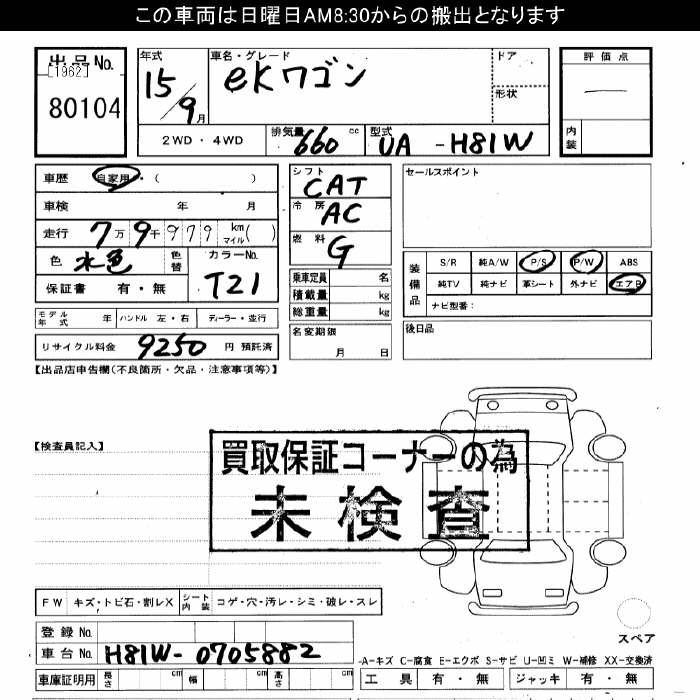 この車両は日曜日AM8:30からの搬出となります
出品No.
[1962]
80104
年式 15/9月
車名・グレード ekワゴン
ドア
形状
2WD・4WD
排気量 660 cc
型式 UA-H81W
評価点
—
内装
車歴 自家用・( )
車検 年 月
走行 7万9千979 km マイル( )
色 水色 色替
カラーNo. T21
保証書 有・無
モデル年式 年 ハンドル 左・右 ディーラー・並行
リサイクル料金 9250 円 預託済
シフト CAT
冷房 AC
燃料 G
乗車定員 名
積載量 kg
総重量 kg
名変期限
月 日
セールスポイント
装備品
S/R 純A/W P/S P/W ABS
純TV 純ナビ 革シート 外ナビ エアB
ナビ型番:
後日品
【出品店申告欄(不良箇所・欠品・注意事項等)】
【検査員記入】
買取保証コーナーの為
未検査
FW キズ・トビ石・割レX シート内装 コゲ・穴・汚レ・シミ・破レ・スレ
スペア
登録No.
車台No. H81W-0705882
車庫証明用 長さ cm 幅 cm 高さ cm
-A-キズ C-腐食 E-エクボ S-サビ U-凹ミ W-補修 XX-交換済
工具 有・無 ジャッキ 有・無